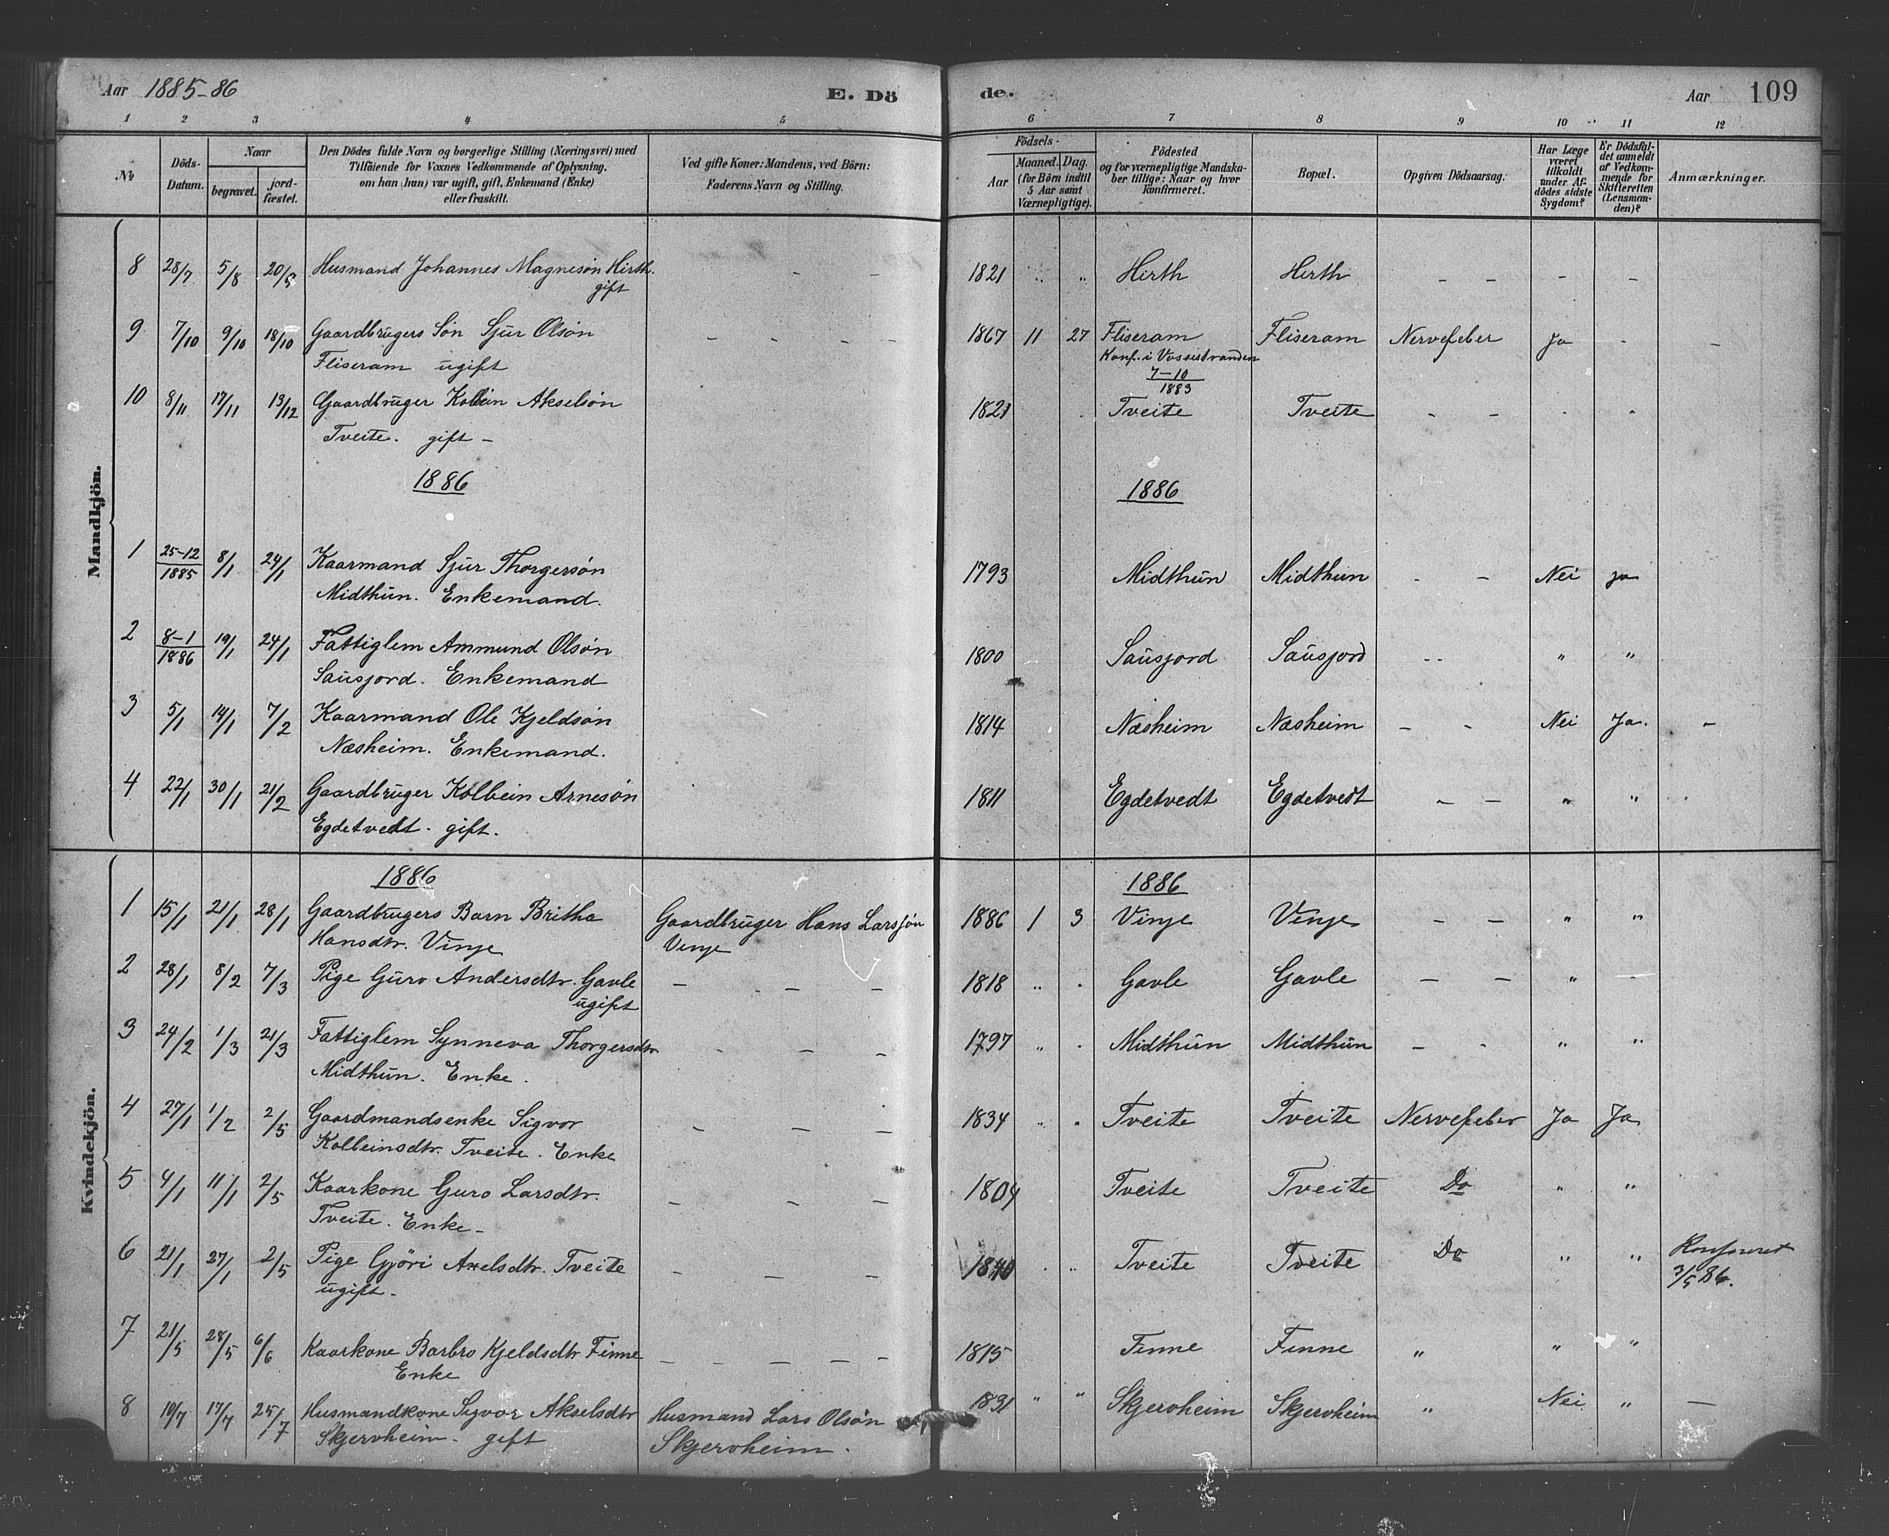 Aar 1885-86 E. Dö de. Aar 109
1 2 3 4 5 6 7 8 9 10 11 12
No
Döds-
Datum.
Naar
begravet.
jord-
fæstet.
Den Dödes fulde Navn og borgerlige Stilling (Næringsvei) med
Tilföiende for Voxnes Vedkommende af Oplysning,
om han (hun) var ugift, gift, Enkemand (Enke)
eller fraskilt.
Ved gifte Koner: Mandens, ved Börn:
Faderens Navn og Stilling.
Födsels-
Aar
Maaned. Dag.
(for Börn indtil
5 Aar samt
Værnepligtige).
Födested
og for værnepligtige Mandska-
ber tillige: Naar og hvor
Konfirmeret.
Bopæl.
Opgiven Dödsaarsag.
Har Læge
været
tilkaldt
under Af-
dödes sidste
Sygdom?
Er Dödsfal-
det anmeldt
af Vedkom-
mende for
Skifteretten
(Lensman-
den)?
Anmærkninger.
Mandkjön.
8 28/7 5/8 20/9 Husmand Johannes Magnesøn Hirth. - - 1821 " " Hirth Hirth - - - -
gift
9 7/10 9/10 18/10 Gaardbrugers Søn Sjur Olsøn - - - - 1867 11 27 Fliseram Fliseram Nervefeber Ja - -
Fliseram ugift Konf. i Vossestranden
7-10
1883
10 8/11 17/11 13/12 Gaardbruger Kolbein Akselsøn 1821 Tveite Tveite - -
Tveite. gift -
1886 1886
1 25-12/1885 8/1 24/1 Kaarmand Sjur Thorgersøn 1793 Midthun Midthun - - Nei ja
Midthun. Enkemand.
2 8-1/1886 19/1 24/1 Fattiglem Ammund Olsøn 1800 Sausjord Sausjord - - " "
Sausjord. Enkemand
3 5/1 14/1 7/2 Kaarmand Ole Kjeldsøn 1814 Næsheim Næsheim - - Nei Ja. -
Næsheim. Enkemand.
4 22/1 30/1 21/2 Gaardbruger Kolbein Arnesøn 1811 Egdetvedt Egdetvedt - - " "
Egdetvedt. gift.
Kvindekjön.
1886 1886
1 15/1 21/1 28/1 Gaardbrugers Barn Britha Gaardbruger Hans Larssøn 1886 1 3 Vinje Vinje - - " "
Hansdtr. Vinje Vinje
2 28/1 8/2 7/3 Pige Guro Andersdtr. Gavle - - - 1818 " " Gavle Gavle - - " -
ugift
3 24/2 1/3 21/3 Fattiglem Synneva Thorgersdtr - - - 1797 " " Midthun Midthun - - " "
Midthun. Enke.
4 27/1 1/2 2/5 Gaardmandsenke Sigvor - - - 1834 " " Tveite Tveite Nervefeber Ja Ja
Kolbeinsdtr. Tveite. Enke
5 4/1 11/1 2/5 Kaarkone Guro Larsdtr. - - - 1804 Tveite Tveite Do " "
Tveite. Enke -
6 21/1 27/1 2/5 Pige Gjöri Axelsdtr. Tveite - - - 1840 " " Tveite Tveite Do " "
ugift - 3/5 86.
7 21/5 28/5 6/6 Kaarkone Barbro Kjeldsdtr Finne - - - - - 1815 Finne Finne " " "
Enke
8 10/7 17/7 25/7 Husmandkone Sigvor Akselsdtr Husmand Lars Olsøn 1831 " " Skjervheim Skjervheim " Nei " -
Skjervheim - gift Skjervheim.